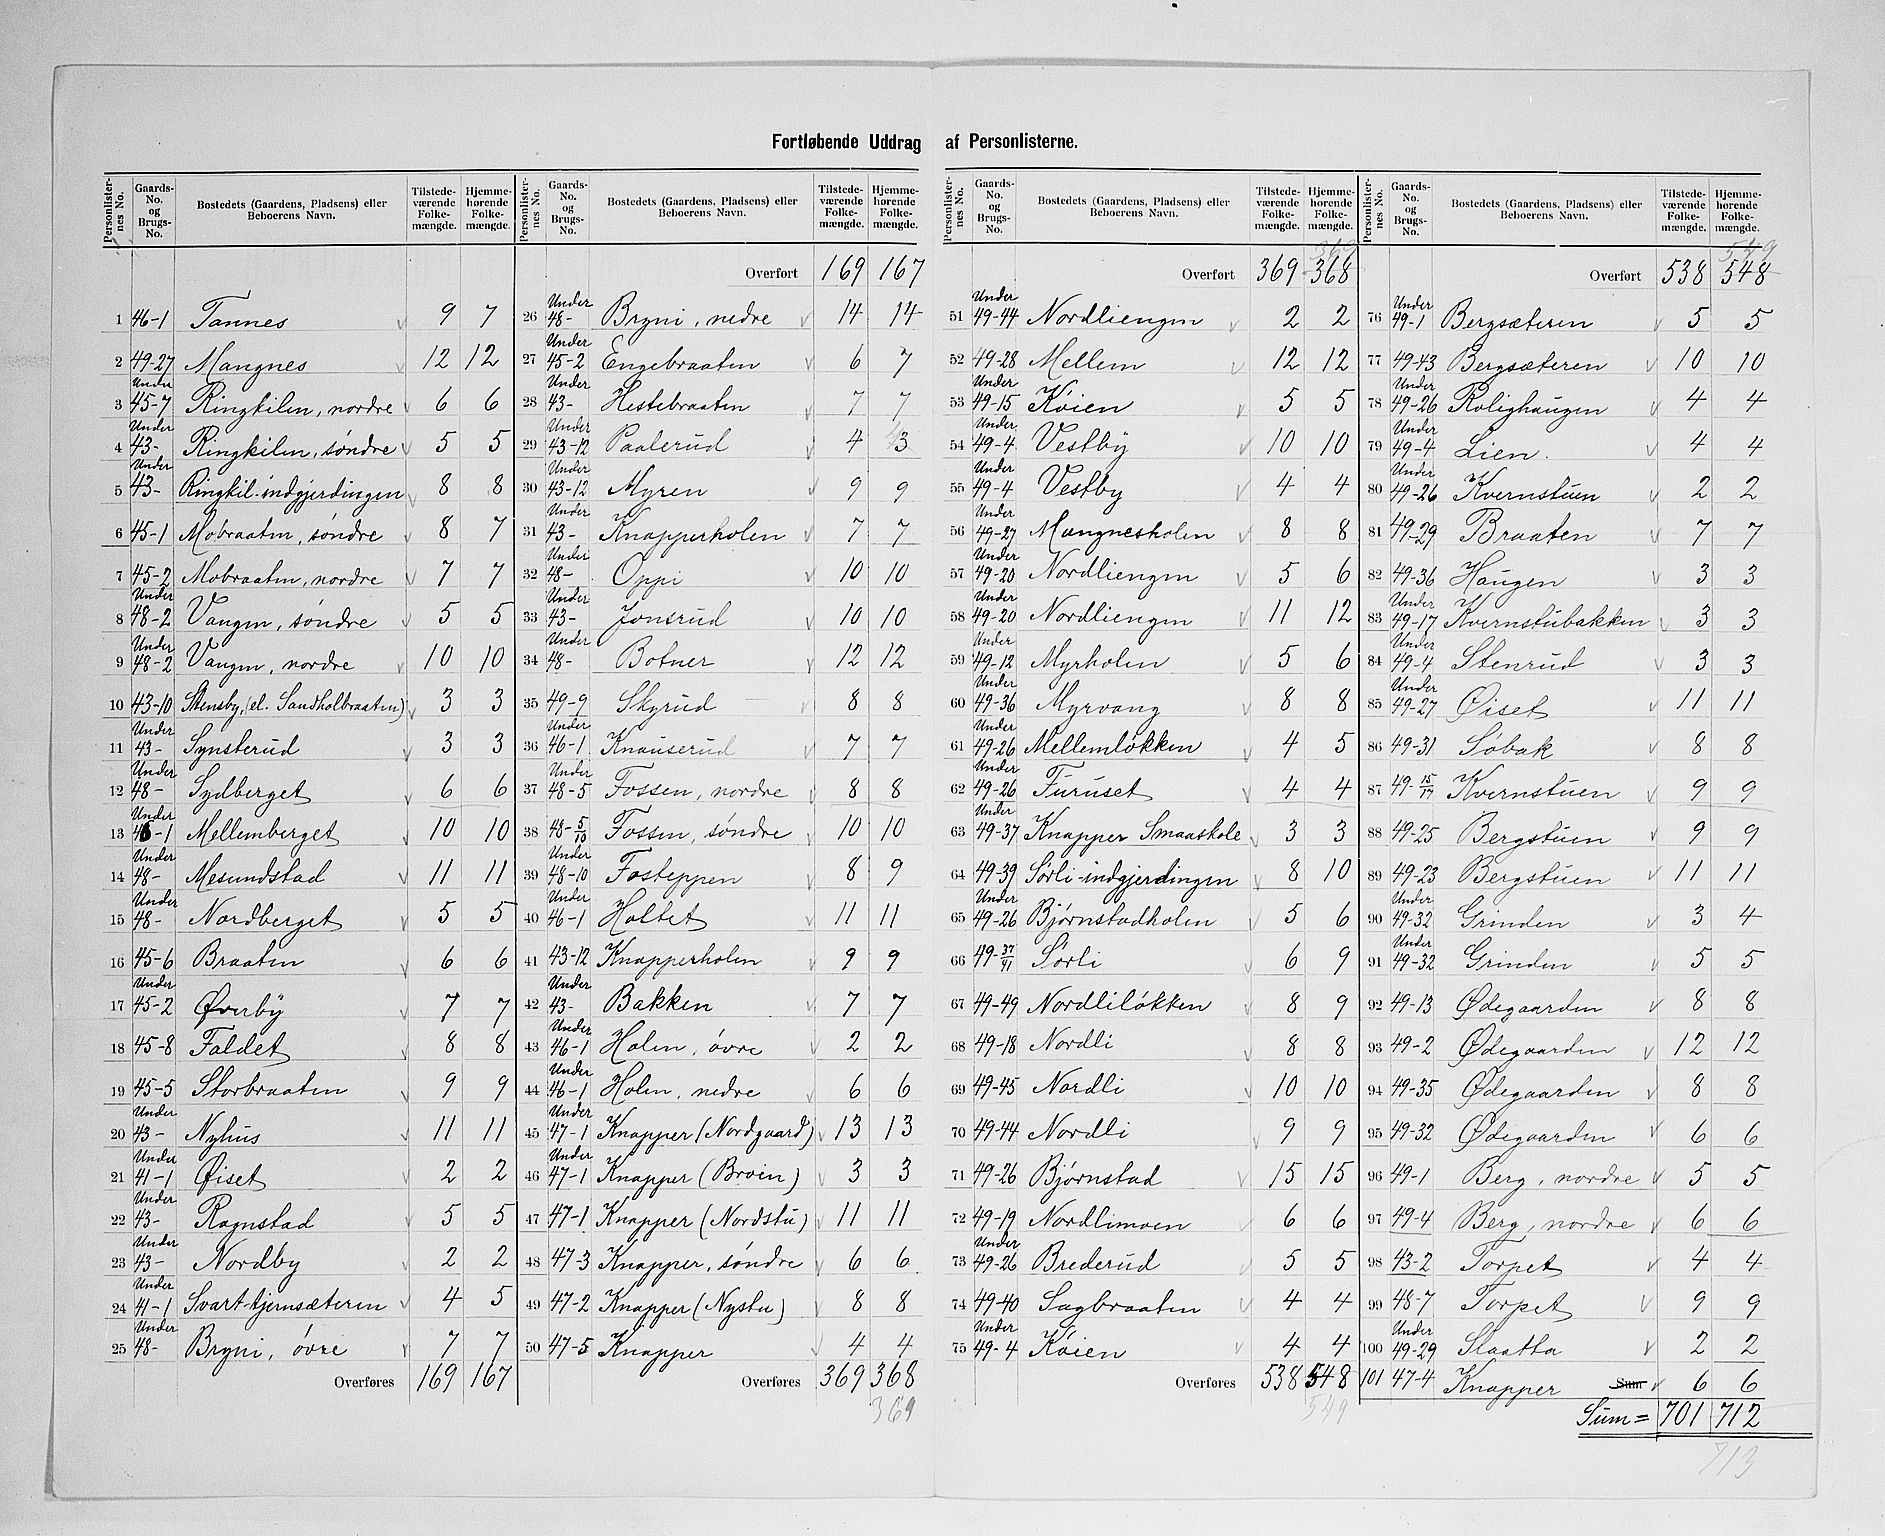 Fortløbende Uddrag af Personlisterne.
Personlisternes No. Gaards-No. og Brugs-No. Bostedets (Gaardens, Pladsens) eller Beboerens Navn. Tilstedeværende Folkemængde. Hjemmehørende Folkemængde.
1 46-1 Tannes 9 7
2 49-27 Mangnes 12 12
3 Under 45-7 Ringkilen, nordre 6 6
4 Under 43- Ringkilen, søndre 5 5
5 Under 43- Ringkil-indgjerdingen 8 8
6 45-1 Mobraaten, søndre 8 7
7 45-2 Mobraaten, nordre 7 7
8 Under 48-2 Vangen, søndre 5 5
9 Under 48-2 Vangen, nordre 10 10
10 43-10 Stensby, (el. Sandholbraaten) 3 3
11 Under 43- Synsterud 3 3
12 Under 48- Sydberget 6 6
13 Under 46-1 Mellemberget 10 10
14 Under 48- Mesundstad 11 11
15 Under 48- Nordberget 5 5
16 45-6 Braaten 6 6
17 Under 45-2 Øverby 7 7
18 45-8 Faldet 8 8
19 45-5 Storbraaten 9 9
20 Under 43- Nyhus 11 11
21 Under 41-1 Øiset 2 2
22 Under 43- Ragnstad 5 5
23 Under 43- Nordby 2 2
24 Under 41-1 Svart-tjernsæteren 4 5
25 Under 48- Bryni, øvre 7 7
Overføres 169 167
Personlisternes No. Gaards-No. og Brugs-No. Bostedets (Gaardens, Pladsens) eller Beboerens Navn. Tilstedeværende Folkemængde. Hjemmehørende Folkemængde.
Overført 169 167
26 Under 48- Bryni, nedre 14 14
27 Under 45-2 Engebraaten 6 7
28 Under 43- Hestebraaten 7 7
29 Under 43-12 Paalerud 4 3
30 Under 43-12 Myren 9 9
31 Under 43- Knapperholen 7 7
32 Under 48- Oppi 10 10
33 Under 43- Jonsrud 10 10
34 Under 48- Botner 12 12
35 49-9 Skyrud 8 8
36 Under 46-1 Knauserud 7 7
37 Under 48-5 Fossen, nordre 8 8
38 48-5/13 Fossen, søndre 10 10
39 Under 48-10 Fosteppen 8 9
40 Under 46-1 Holtet 11 11
41 43-12 Knapperholen 9 9
42 Under 43- Bakken 7 7
43 Under 46-1 Holen, øvre 2 2
44 Under 46-1 Holen, nedre 6 6
45 Under 47-1 Knapper (Nordgaard) 13 13
46 Under 47-1 Knapper (Broen) 3 3
47 47-1 Knapper (Nordstu) 11 11
48 47-3 Knapper, søndre 6 6
49 47-2 Knapper (Nystu) 8 8
50 47-5 Knapper 4 4
Overføres 369 368
369
Personlisternes No. Gaards-No. og Brugs-No. Bostedets (Gaardens, Pladsens) eller Beboerens Navn. Tilstedeværende Folkemængde. Hjemmehørende Folkemængde.
369
Overført 369 368
51 Under 49-44 Nordliengen 2 2
52 49-28 Mellem 12 12
53 Under 49-15 Køien 5 5
54 Under 49-4 Vestby 10 10
55 Under 49-4 Vestby 4 4
56 Under 49-27 Mangnesholen 8 8
57 Under 49-20 Nordliengen 5 6
58 Under 49-20 Nordliengen 11 12
59 Under 49-12 Myrholen 5 6
60 Under 49-36 Myrvang 8 8
61 Under 49-26 Mellemløkken 4 5
62 Under 49-26 Furuset 4 4
63 Under 49-37 Knapper Smaaskole 3 3
64 49-39 Sørli-indgjerdingen 8 10
65 Under 49-26 Bjørnstadholen 5 6
66 49-37/41 Sørli 6 9
67 49-49 Nordliløkken 8 9
68 49-18 Nordli 8 8
69 49-45 Nordli 10 10
70 49-44 Nordli 9 9
71 49-26 Bjørnstad 15 15
72 49-19 Nordlimoen 6 6
73 Under 49-26 Brederud 5 5
74 49-40 Sagbraaten 4 4
75 Under 49-4 Køien 4 4
Overføres 538 548
549
Personlisternes No. Gaards-No. og Brugs-No. Bostedets (Gaardens, Pladsens) eller Beboerens Navn. Tilstedeværende Folkemængde. Hjemmehørende Folkemængde.
549
Overført 538 548
76 Under 49-1 Bergsæteren 5 5
77 49-43 Bergsæteren 10 10
78 Under 49-26 Rolighaugen 4 4
79 Under 49-4 Lien. 4 4
80 Under 49-26 Kvernstuen 2 2
81 49-29 Braaten 7 7
82 49-36 Haugen 3 3
83 Under 49-17 Kvernstubakken 3 3
84 Under 49-4 Stenrud 3 3
85 Under 49-27 Øiset 11 11
86 49-31 Søbak 8 8
87 49-15/17 Kvernstuen 9 9
88 49-25 Bergstuen 9 9
89 49-23 Bergstuen 11 11
90 Under 49-32 Grinden 3 4
91 Under 49-32 Grinden 5 5
92 49-13 Ødegaarden 8 8
93 49-2 Ødegaarden 12 12
94 49-35 Ødegaarden 8 8
95 49-32 Ødegaarden 6 6
96 49-1 Berg, nordre 5 5
97 49-4 Berg, nordre 6 6
98 43-2 Torpet 4 4
99 48-7 Torpet 9 9
100 Under 49-29 Slaatta 2 2
101 47-4 Knapper Sum 6 6
Sum = 701 712
713